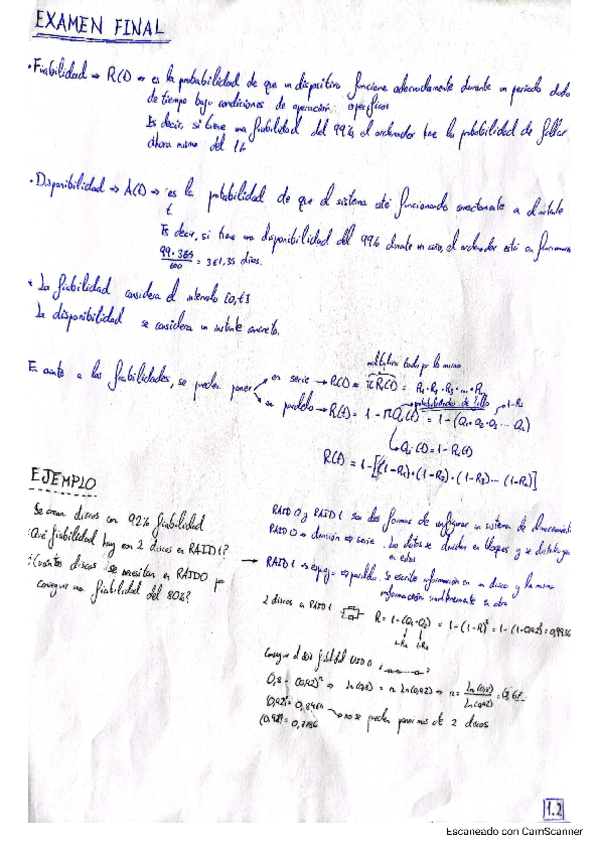 EXAMEN FINAL
• Fiabilidad → R(t) → es la probabilidad de que un dispositivo funcione adecuadamente durante un periodo dado
de tiempo bajo condiciones de operación específicas
Es decir, si tiene una fiabilidad del 99%, el ordenador tiene la probabilidad de fallar
ahora mismo del 1%
• Disponibilidad → A(t) → es la probabilidad de que el sistema esté funcionando correctamente a el instante
t.
Es decir, si tiene una disponibilidad del 99% durante un año, el ordenador está en funcionam
99·365/100 = 361,35 días.
• La fiabilidad considera el intervalo [0,t]
La disponibilidad se considera un instante concreto.
En cuanto a las fiabilidades, se pueden poner
multiplicar todo por lo mismo
en serie → R(t) = πRi(t) = R1·R2·R3·...·Rn
probabilidades de fallo 1-Ri
en paralelo → R(t) = 1 - πQi(t) = 1-(Q1·Q2·Q3 ... Qn)
Qi(t) = 1-Ri(t)
R(t) = 1-[(1-R1)·(1-R2)·(1-R3)... (1-Rn)]
EJEMPLO
Se crean discos con 92% fiabilidad
¿Qué fiabilidad hay con 2 discos en RAID1?
¿Cuántos discos se necesitan en RAID0 para
conseguir una fiabilidad del 80%?
RAID 0 y RAID 1 son dos formas de configurar un sistema de almacenamiento
RAID 0 → división → serie. Los datos se dividen en bloques y se distribuyen
en estos
→ RAID 1 → espejo → paralelo. Se escribe información en un disco y la misma
información simultáneamente en otro
2 discos en RAID 1 R = 1-(Q1·Q2) = 1-(1-R)² = 1-(1-0,92)² = 0,9936
1-R1 1-R2
Conseguir el 80% fiabilidad
0,8 = (0,92)ⁿ → ln(0,8) = n ln(0,92) → n = ln(0,8)/ln(0,92) = 2,68
(0,92)² = 0,8464
(0,92)³ = 0,7786 → no se pueden poner más de 2 discos
1.2
Escaneado con CamScanner